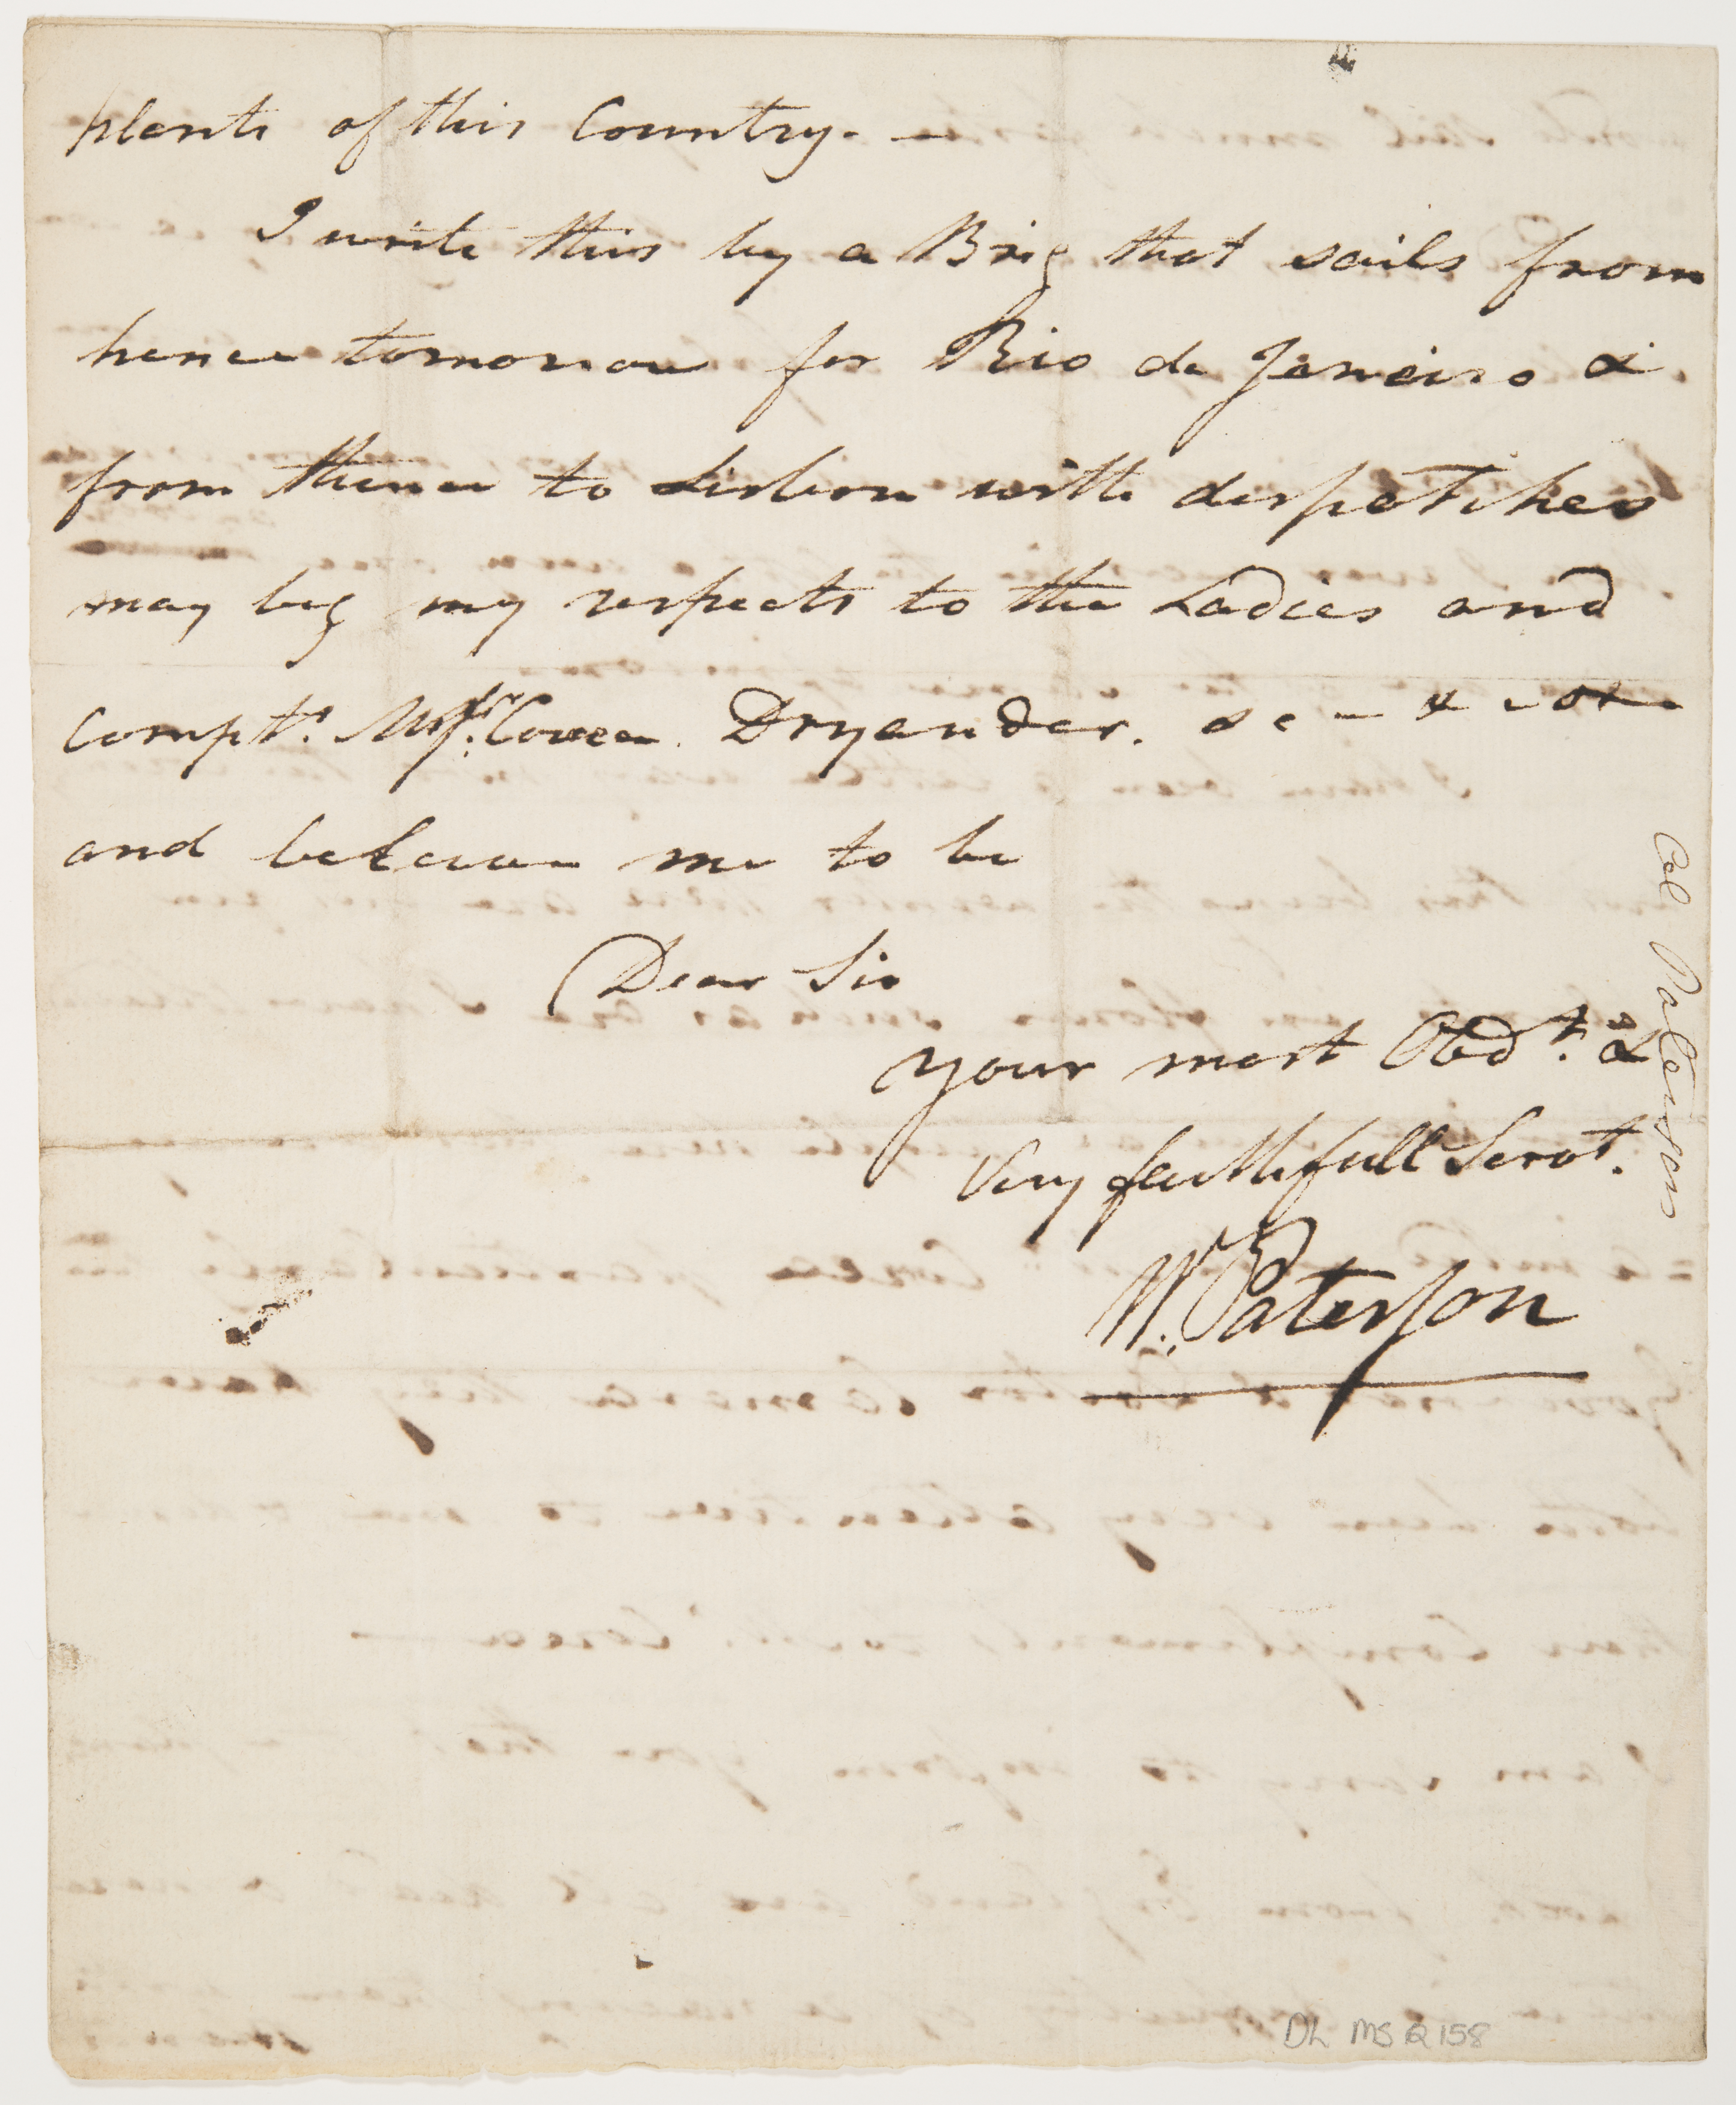 plants of this Country. —
I write this by a Brig that sails from
hence tomorrow for Rio de Janeiro &
from thence to Lisbon with dispatches
may beg my respects to the Ladies and
Compts. Dryander. &c
and beleive me to be
Dear Sir
your most Obdt. &
Very faithfull Servt.
W. Paterson
Col Paterson
DL MS Q 158